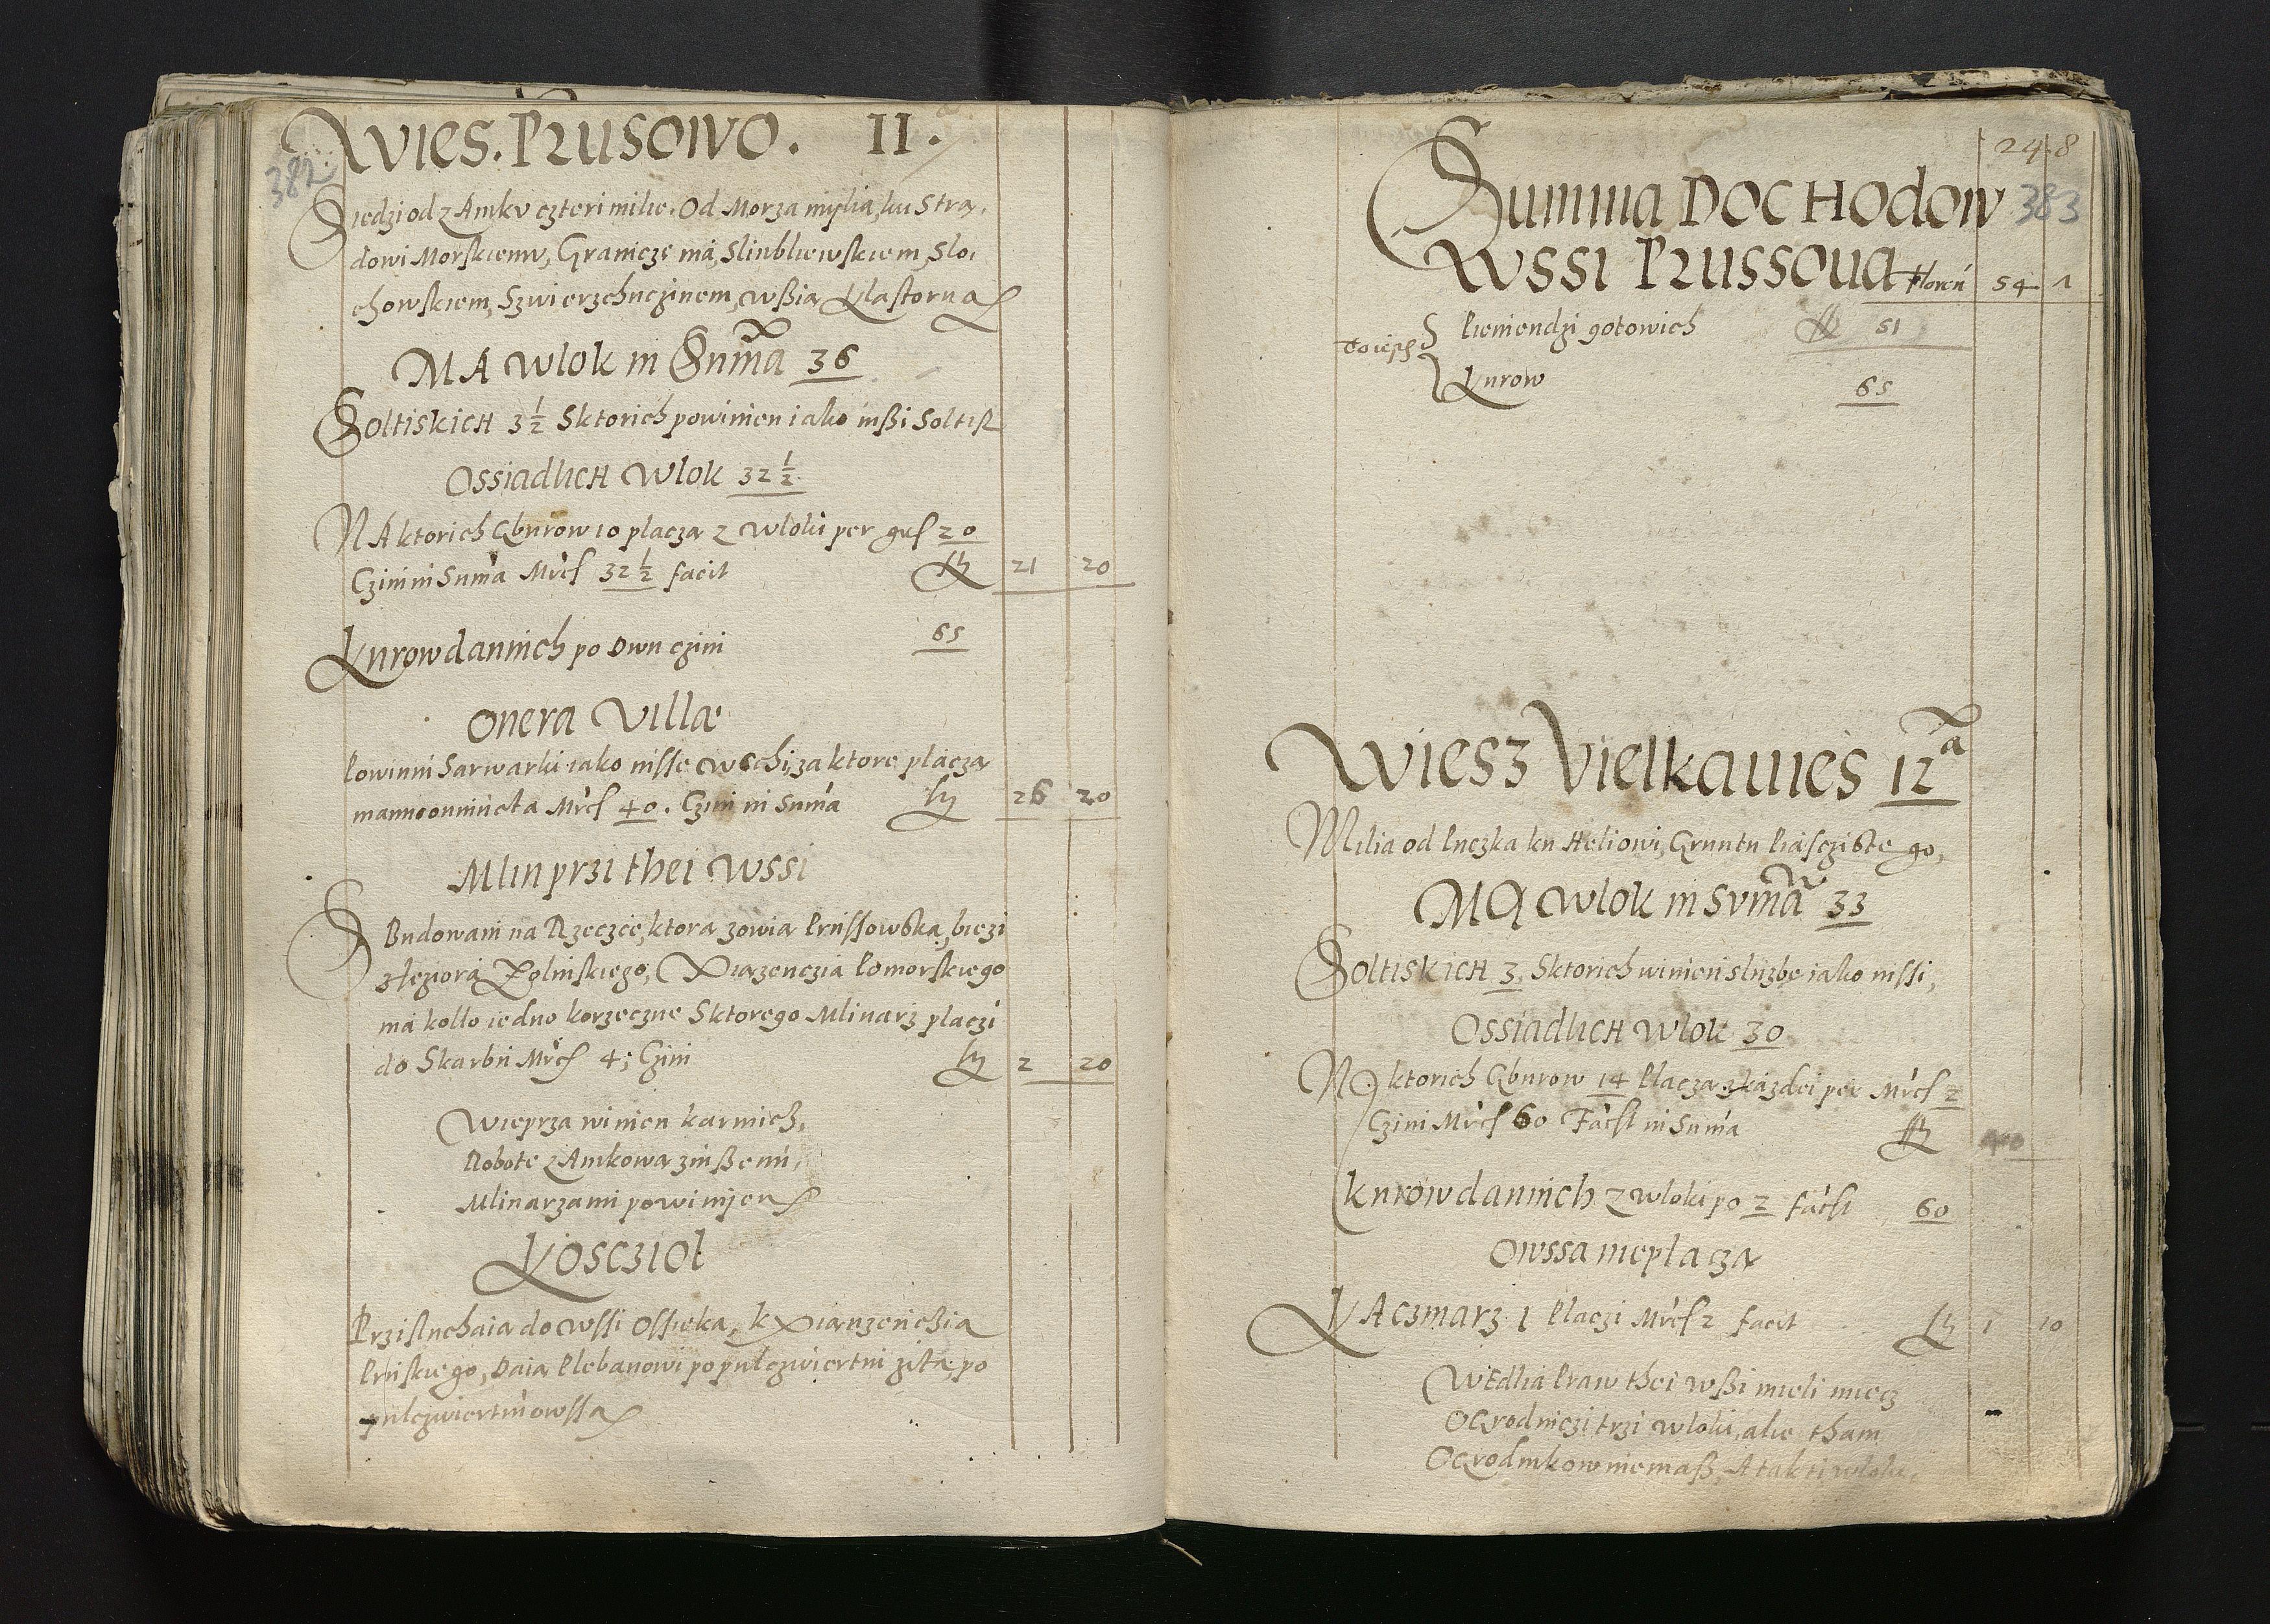 Wies. Prusowo. II.
382.
Siedzi od zAmku czteri milie. Od Morza mylia, ku Stra,
dowi Morskiemu, Granicze má, Slinbliewskiem, Slo,
chowskiem, Szwierzchuczinem, wßia Klastorna
MA Wlok in Summa 36
Soltiskich 3 1/2 Sktorich powinien iako inßi Soltiß
Ossiadlich Wlok 32 1/2
NA ktorich Gburow 10 placza z wloki per gros 20
Czini in Summa Mrcs 32 1/2 facit fl 21 20
Kurow dannich po Dwu czini 65
Onera Villæ
Powinni Sarwarki iako insse wschi za ktore placza
Mrcs 40. Czini in Summa fl 26 20
Mlin przi thei Wssi
Budowani na Rzeczce, ktora zowia Prussowska, biezi
zJeziora Zolniskiego, Xiazenczia Pomorskiego
má kollo iedno korzeczne Sktorego Mlinarz placzi
do Skarbu Mrcs 4; Czini fl 2 20
Wieprza winien karmich,
Robote zAmkowa zinßemi,
Mlinarzami powinien
Kosczioł
Przisluchaia do wssi Ossieka, k Xianzenczia
Pruskiego, Daia Plebanowi po pulczwiertni zita, po
pulczwiertni owssa
248
383
Summa DOCHodow
Wssi Prussoua Floren 54 1
To iest Pieniendzi gotowich fl 51
Kurow 65
Wiesz Vielkawies 12a
Milia od Puczka ku Heliowi, Gruntu Piasczistego,
MA Wlok in Summa 33
Soltiskich 3, Sktorich winien sluzbe iako inssi,
Ossiadlich Wlok 30
NA ktorich Gburow 14 Placza zkázdei per Mrcs 2
Czini Mrcs 60 Facit in Summa fl
Kurow dannich z wloki po 2 facit 60
Owssa nieplacza
KAczmarz 1 Placzi Mrcs 2 facit fl 1 10
WEdlia Praw thei wßi mieli miecz
OGrodniczi trzi wloki, alie tham
OGrodnikow niemaß, A tak ti wloki,